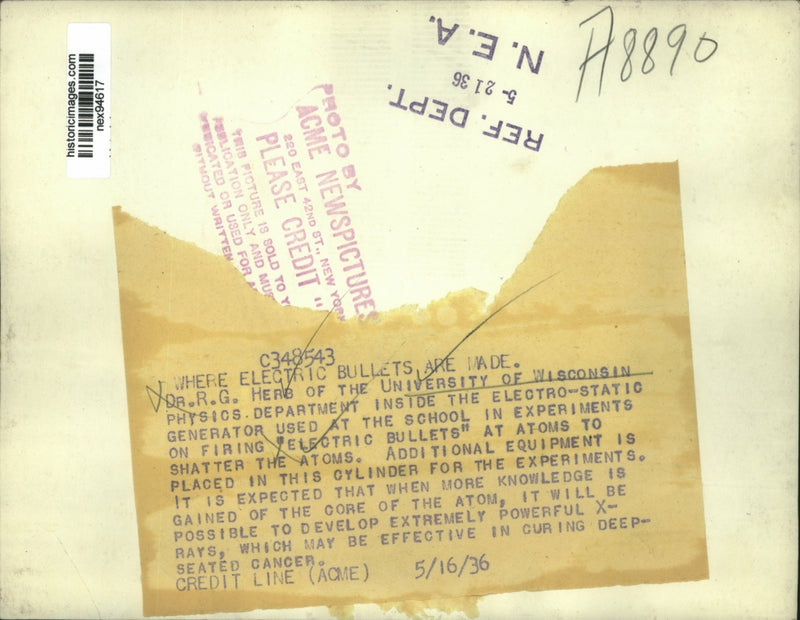 historicimages.com
nex94617
A8890
REF. DEPT.
5-21 36
N. E. A.
PHOTO BY
ACME NEWSPICTURES
220 EAST 42ND ST., NEW YORK
PLEASE CREDIT "
THIS PICTURE IS SOLD TO
PUBLICATION ONLY AND
OR USED FOR
WITHOUT WRITTEN
C348543
WHERE ELECTRIC BULLETS ARE MADE.
DR.R.G. HERB OF THE UNIVERSITY OF WISCONSIN
PHYSICS DEPARTMENT INSIDE THE ELECTRO-STATIC
GENERATOR USED AT THE SCHOOL IN EXPERIMENTS
ON FIRING "ELECTRIC BULLETS" AT ATOMS TO
SHATTER THE ATOMS. ADDITIONAL EQUIPMENT IS
PLACED IN THIS CYLINDER FOR THE EXPERIMENTS.
IT IS EXPECTED THAT WHEN MORE KNOWLEDGE IS
GAINED OF THE CORE OF THE ATOM, IT WILL BE
POSSIBLE TO DEVELOP EXTREMELY POWERFUL X-
RAYS, WHICH MAY BE EFFECTIVE IN CURING DEEP-
SEATED CANCER.
CREDIT LINE (ACME) 5/16/36